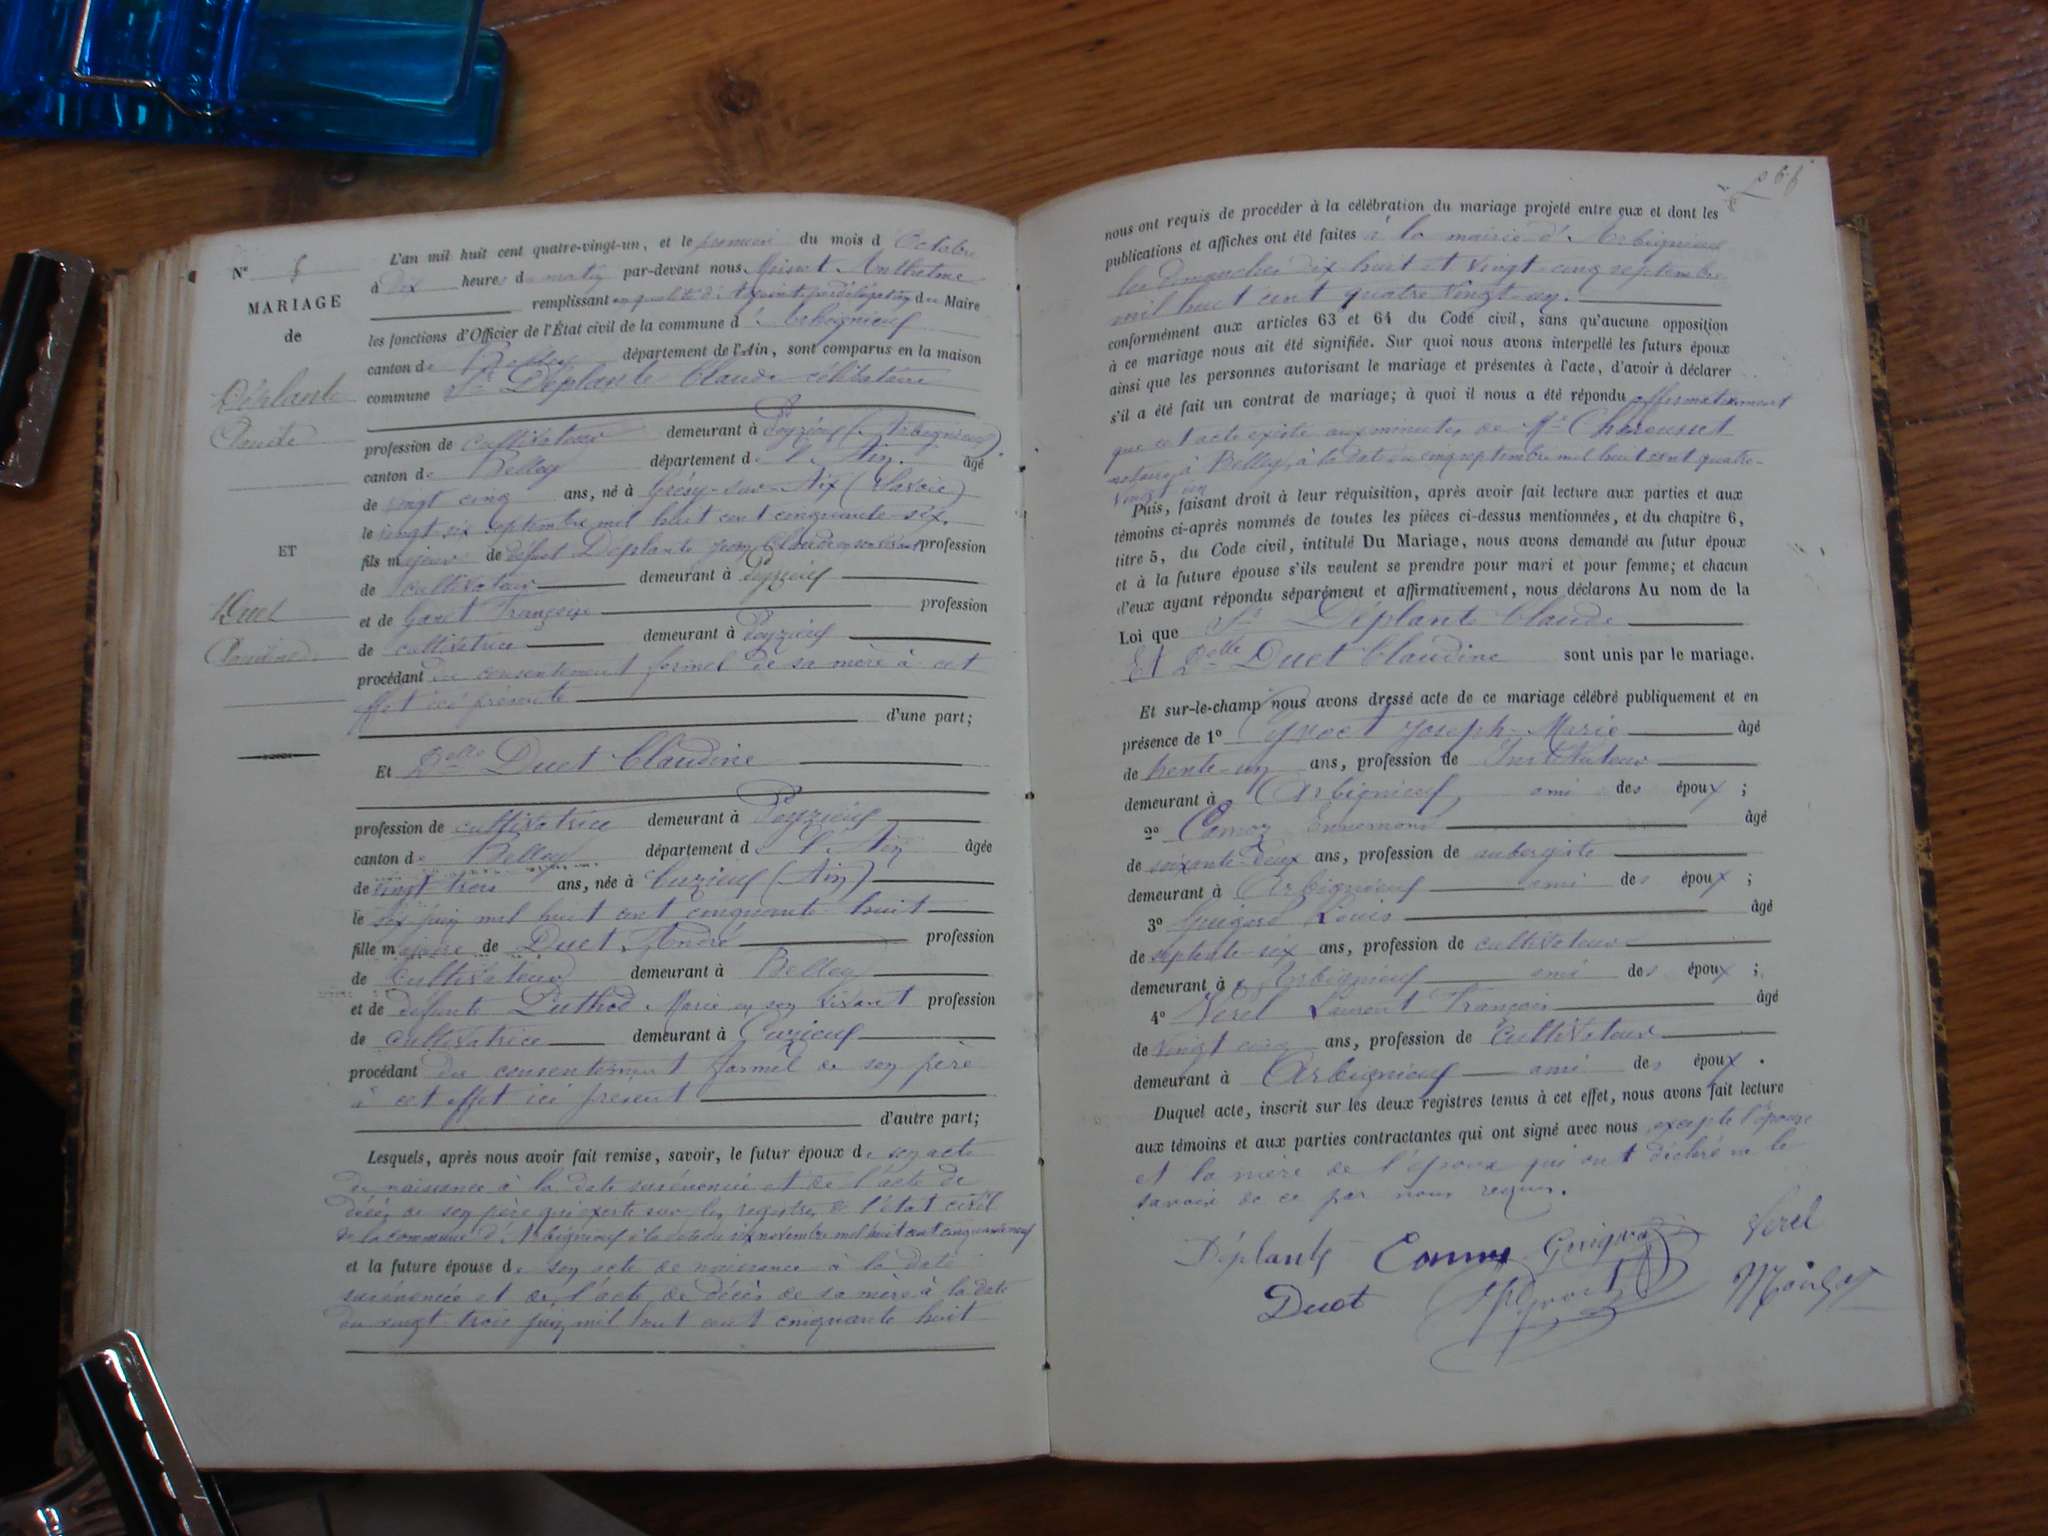 N° 8
MARIAGE
de
Déplante
Claude
ET
Duet
Claudine
L'an mil huit cent quatre-vingt-un, et le premier du mois d'Octobre
à dix heures du matin par-devant nous Moinet Anthelme
remplissant en qualité d'Adjoint par délégation du Maire
les fonctions d'Officier de l'État civil de la commune d'Arbignieu
canton de Belley département de l'Ain, sont comparus en la maison
commune Sr Déplante Claude célibataire
profession de cultivateur demeurant à Peyzieu (Arbignieu)
canton de Belley département de l'Ain. âgé
de vingt cinq ans, né à Grésy-sur-Aix (Savoie)
le vingt-six septembre mil huit cent cinquante-six.
fils majeur de défunt Déplante Jean Claude en son vivant profession
de cultivateur demeurant à Peyzieu
et de Garet Françoise profession
de cultivatrice demeurant à Peyzieu
procédant du consentement formel de sa mère à cet
effet ici présente
d'une part;
Et Delle Duet Claudine
profession de cultivatrice demeurant à Peyzieu
canton de Belley département de l'Ain âgée
de vingt trois ans, née à Cuzieu (Ain)
le six juin mil huit cent cinquante huit
fille majeure de Duet André profession
de Cultivateur demeurant à Belley
et de défunte Luthod Marie en son vivant profession
de cultivatrice demeurant à Cuzieu
procédant du consentement formel de son père
à cet effet ici présent
d'autre part;
Lesquels, après nous avoir fait remise, savoir, le futur époux de son acte
de naissance à la date susénoncée et de l'acte de
décès de son père qui existe sur les registres de l'état civil
de la commune d'Arbignieu à la date du six novembre mil huit cent cinquante neuf
et la future épouse de son acte de naissance à la date
susénoncée et de l'acte de décès de sa mère à la date
du vingt trois juin mil huit cent cinquante huit
nous ont requis de procéder à la célébration du mariage projeté entre eux et dont les
publications et affiches ont été faites à la mairie d'Arbignieu
les dimanches dix huit et vingt cinq septembre
mil huit cent quatre vingt-un.
conformément aux articles 63 et 64 du Code civil, sans qu'aucune opposition
à ce mariage nous ait été signifiée. Sur quoi nous avons interpellé les futurs époux
ainsi que les personnes autorisant le mariage et présentes à l'acte, d'avoir à déclarer
s'il a été fait un contrat de mariage; à quoi il nous a été répondu affirmativement
que cet acte existe aux minutes de Me Charousset
notaire à Belley, à la date du cinq septembre mil huit cent quatre-
vingt un
Puis, faisant droit à leur réquisition, après avoir fait lecture aux parties et aux
témoins ci-après nommés de toutes les pièces ci-dessus mentionnées, et du chapitre 6,
titre 5, du Code civil, intitulé Du Mariage, nous avons demandé au futur époux
et à la future épouse s'ils veulent se prendre pour mari et pour femme; et chacun
d'eux ayant répondu séparément et affirmativement, nous déclarons Au nom de la
Loi que Sr Déplante Claude
Et Delle Duet Claudine sont unis par le mariage.
Et sur-le-champ nous avons dressé acte de ce mariage célébré publiquement et en
présence de 1° Joseph-Marie âgé
de trente-un ans, profession de Instituteur
demeurant à Arbignieu ami des époux;
2° Camoz Ennemond âgé
de soixante-deux ans, profession de aubergiste
demeurant à Arbignieu ami des époux;
3° Guigard Louis âgé
de septante-six ans, profession de cultivateur
demeurant à Arbignieu ami des époux;
4° Verel Laurent François âgé
de vingt cinq ans, profession de Cultivateur
demeurant à Arbignieu ami des époux.
Duquel acte, inscrit sur les deux registres tenus à cet effet, nous avons fait lecture
aux témoins et aux parties contractantes qui ont signé avec nous excepté l'épouse
et la mère de l'époux qui ont déclaré ne le
savoir de ce par nous requis.
Déplante Camoz Guigard Verel
Duet Moinet